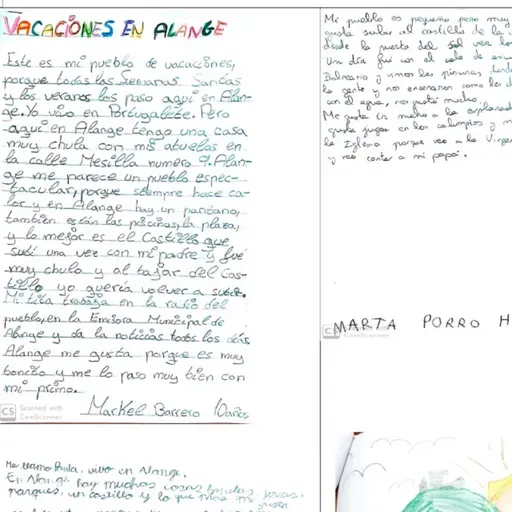 VACACIONES EN ALANGE
Este es mi pueblo de vacacciones,
porque todas las Semanas Santas
y los veranos los paso aquí en Alan-
ge. Yo vivo en Portugalete. Pero
aquí en Alange tengo una casa
muy chula con mis abuelos en
la calle Mesilla numero 9. Alan-
ge me parece un pueblo espec-
tacular, porque siempre hace ca-
lor y en Alange hay un pantano,
también están las piscinas, la plaza,
y lo mejor es el Castillo que
subí una vez con mi padre y fué
muy chulo y al bajar del Cas-
tillo yo quería volver a subir.
Mi tita trabaja en la radio del
pueblo, en la Emisora Municipal de
Alange y da la noticias todos los días
Alange me gusta porque es muy
bonito y me lo paso muy bien con
mi primo.
Markel Barrero 10 años
CS Scanned with
CamScanner
Mi pueblo es pequeño pero muy
gusta subir al castillo de la
desde la puerta del sol veo
Un día fui con el cole
Balneario y vimos las piscinas
la gente y nos enseñaron como
con el agua, me gustó mucho.
Me gusta ir mucho a la explanada
gusta jugar en los columpios y
la Iglesia porque veo a la Virgen
y veo cantar a mi papá.
CS
MARTA PORRO H
Me llamo Paula, vivo en Alange.
En Alange hay muchas cosas bonitas,
parques, un castillo y lo que más me